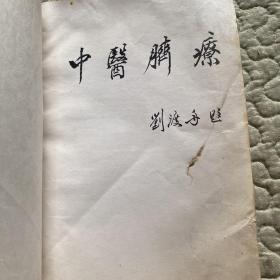 中醫臍療
劉渡舟題